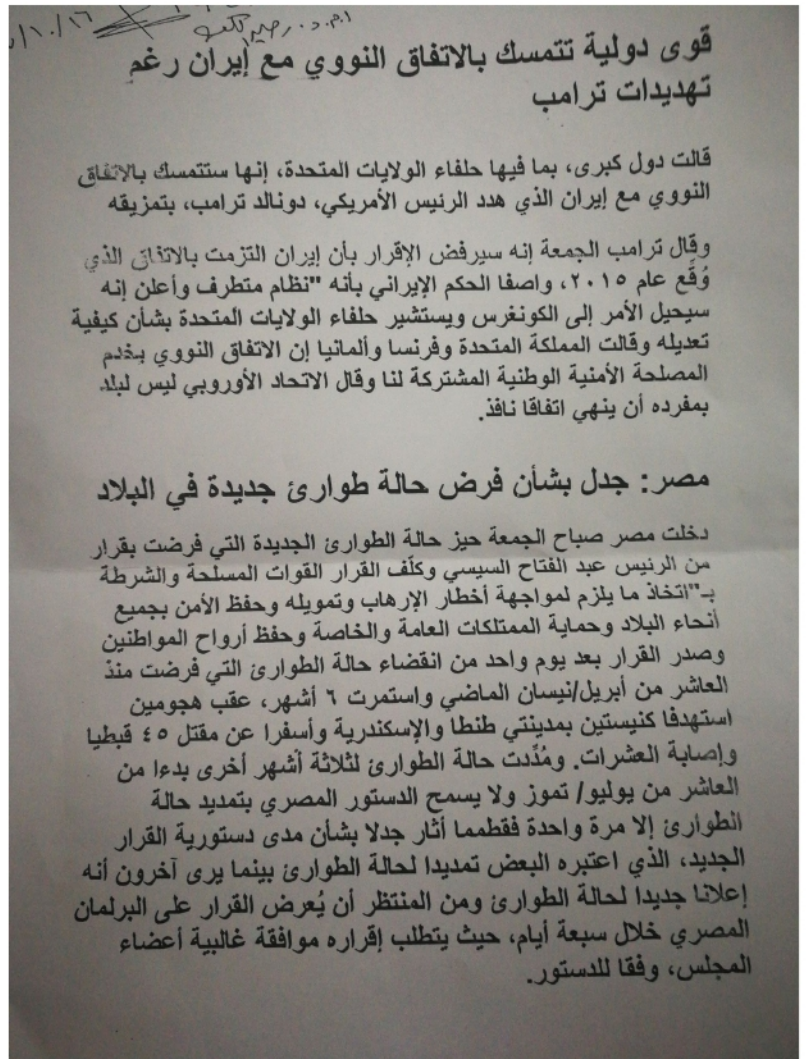 ا.م.د.
١٠/١٦/
قوى دولية تتمسك بالاتفاق النووي مع إيران رغم
تهديدات ترامب
قالت دول كبرى، بما فيها حلفاء الولايات المتحدة، إنها ستتمسك بالاتفاق
النووي مع إيران الذي هدد الرئيس الأمريكي، دونالد ترامب، بتمزيقه
وقال ترامب الجمعة إنه سيرفض الإقرار بأن إيران التزمت بالاتفاق الذي
وُقّع عام ٢٠١٥، واصفا الحكم الإيراني بأنه "نظام متطرف وأعلن إنه
سيحيل الأمر إلى الكونغرس ويستشير حلفاء الولايات المتحدة بشأن كيفية
تعديله وقالت المملكة المتحدة وفرنسا وألمانيا إن الاتفاق النووي يخدم
المصلحة الأمنية الوطنية المشتركة لنا وقال الاتحاد الأوروبي ليس لبلد
بمفرده أن ينهي اتفاقا نافذ.
مصر: جدل بشأن فرض حالة طوارئ جديدة في البلاد
دخلت مصر صباح الجمعة حيز حالة الطوارئ الجديدة التي فرضت بقرار
من الرئيس عبد الفتاح السيسي وكلّف القرار القوات المسلحة والشرطة
بـ"اتخاذ ما يلزم لمواجهة أخطار الإرهاب وتمويله وحفظ الأمن بجميع
أنحاء البلاد وحماية الممتلكات العامة والخاصة وحفظ أرواح المواطنين
وصدر القرار بعد يوم واحد من انقضاء حالة الطوارئ التي فرضت منذ
العاشر من أبريل/نيسان الماضي واستمرت ٦ أشهر، عقب هجومين
استهدفا كنيستين بمدينتي طنطا والإسكندرية وأسفرا عن مقتل ٤٥ قبطيا
وإصابة العشرات. ومُدِّدت حالة الطوارئ لثلاثة أشهر أخرى بدءا من
العاشر من يوليو/ تموز ولا يسمح الدستور المصري بتمديد حالة
الطوارئ إلا مرة واحدة فقطمما أثار جدلا بشأن مدى دستورية القرار
الجديد، الذي اعتبره البعض تمديدا لحالة الطوارئ بينما يرى آخرون أنه
إعلانا جديدا لحالة الطوارئ ومن المنتظر أن يُعرض القرار على البرلمان
المصري خلال سبعة أيام، حيث يتطلب إقراره موافقة غالبية أعضاء
المجلس، وفقا للدستور.